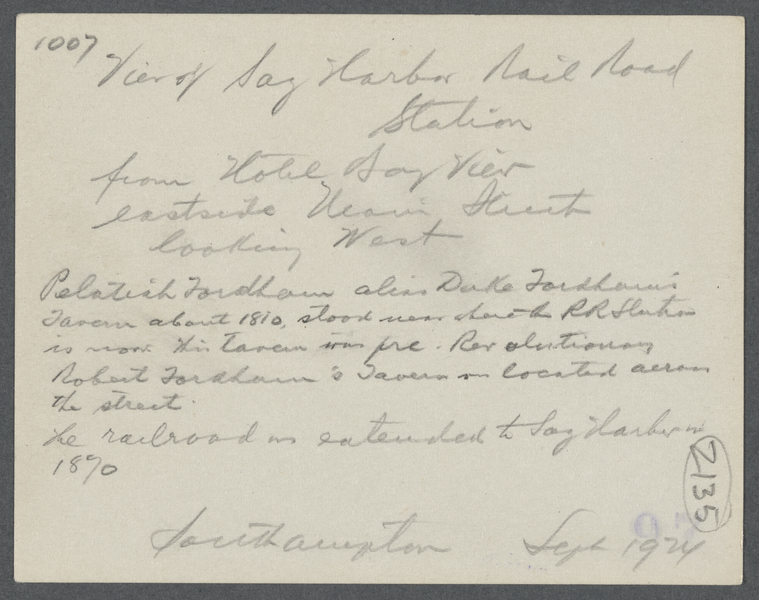 1007
View of Sag Harbor Rail Road
Station
from Hotel Bay View
eastside Main Street
looking West
Pelatiah Fordham alias Duke Fordham's
Tavern about 1810, stood near where the RR Station
is now. This tavern was pre-Revolutionary
Robert Fordham's Tavern was located across
the street.
The railroad was extended to Sag Harbor in
1870
2135
Southampton Sept 1924